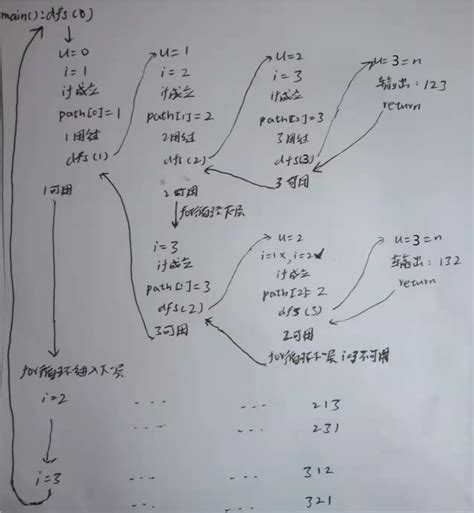 main():dfs(0)
u=0
i=1
if成立
path[0]=1
1用过
dfs(1)
1可用
u=1
i=2
if成立
path[1]=2
2用过
dfs(2)
2可用
for循环下层
u=2
i=3
if成立
path[2]=3
3用过
dfs(3)
3可用
u=3=n
输出:123
return
i=3
if成立
path[1]=3
dfs(2)
3可用
u=2
i=1x,i=2✓
if成立
path[2]=2
dfs(3)
2可用
for循环下一层 i=3不可用
u=3=n
输出:132
return
for循环进入下一层
i=2 ... ... 213
... ... 231
i=3 ... ... 312
... ... 321